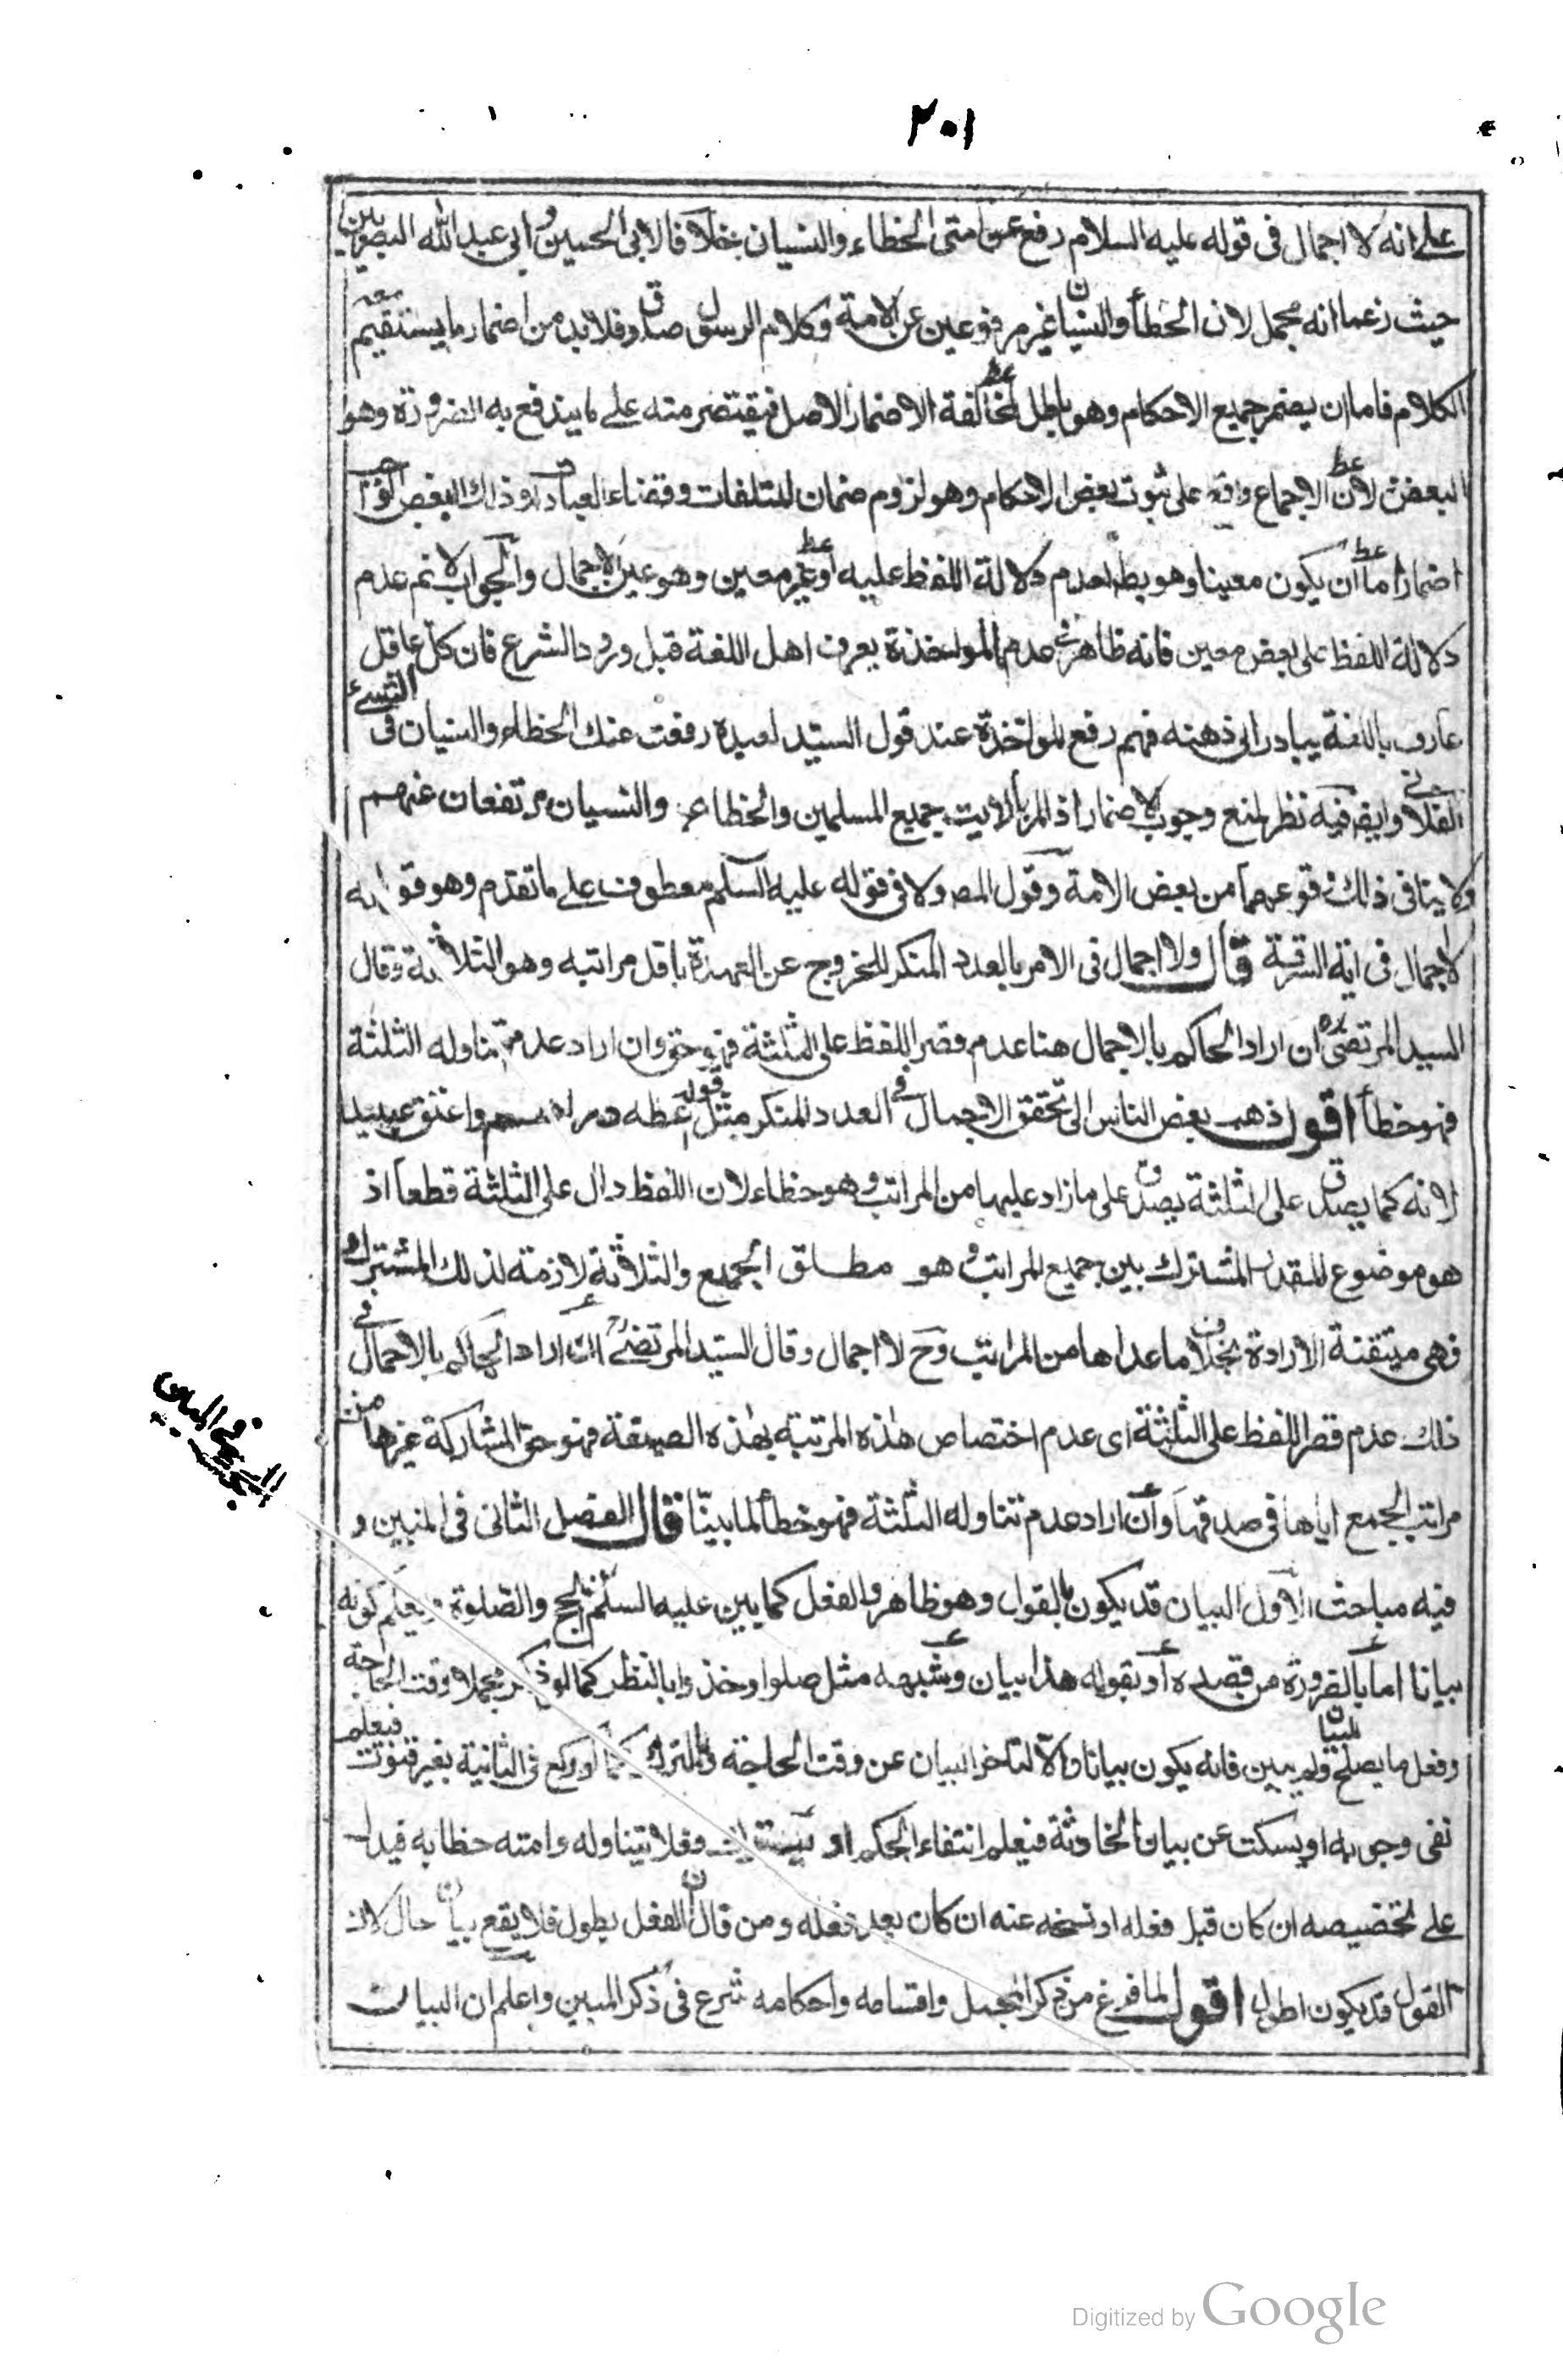 ٢٠١
على انه لا اجمال فى قوله عليه السلام رفع عن امتى الخطاء والنسيان خلافا لابى الحسين وابى عبد الله البصريين
حيث زعما انه مجمل لان الخطأ والنسيان غير مرفوعين عن الامة وكلام الرسول صدق فلا بد من اضمار ما يستقيم معه
الكلام فاما ان يضمر جميع الاحكام وهو باطل لمخالفة الاضمار الاصل فيقتصر منه على ما يندفع به الضرورة وهو
البعض لان الاجماع واقع على ثبوت بعض الاحكام وهو لزوم ضمان المتلفات وقضاء العبادات وذلك البعض
اضمارا ما ان يكون معينا وهو بط لعدم دلالة اللفظ عليه او غير معين وهو عين الاجمال والجواب لا نم عدم
دلالة اللفظ على بعض معين فانه ظاهر فى عدم المواخذة بعرف اهل اللغة قبل ورود الشرع فان كل عاقل
عارف باللغة يبادر الى ذهنه فهم رفع المواخذة عند قول السيد لعبده رفعت عنك الخطاء والنسيان فى الشىء
الفلانى وايضا فيه نظر لمنع وجوب الاضمار اذ المراد جميع المسلمين والخطاء والنسيان مرتفعان عنهم
ولا ينافى ذلك وقوعهما من بعض الامة وقول المص ولا فى قوله عليه السلم معطوف على ما تقدم وهو قوله
لا اجمال فى اية السرقة قال ولا اجمال فى الامر بالعدد المنكر للخروج عن العهدة باقل مراتبه وهو الثلاثة وقال
السيد المرتضى ره ان اراد الحاكم بالاجمال هنا عدم قصر اللفظ على الثلثة فهو حق وان اراد عدم تناوله الثلثة
فهو خطأ اقول ذهب بعض الناس الى تحقق الاجمال فى العدد المنكر مثل قوله اعطه دراهم واعتق عبيدا
لانه كما يصدق على الثلثة يصدق على ما زاد عليها من المراتب وهو خطاء لان اللفظ دال على الثلثة قطعا اذ
هو موضوع للقدر المشترك بين جميع المراتب وهو مطلق الجمع والثلاثة لازمة لذلك المشترك
فهى متيقنة الارادة بخلاف ما عداها من المراتب وح لا اجمال وقال السيد المرتضى ره ان اراد الحاكم بالاجمال فى
ذلك عدم قصر اللفظ على الثلثة اى عدم اختصاص هذه المرتبة بهذه الصيغة فهو حق لمشاركة غيرها من
مراتب الجمع اياها فى صدقها وان اراد عدم تناوله الثلثة فهو خطأ لما بينا قال الفصل الثانى فى المبين و
فيه مباحث الاول البيان قد يكون بالقول وهو ظاهر والفعل كما بين عليه السلم الحج والصلوة ويعلم كونه
بيانا اما بالضرورة من قصده او بقوله هذا بيان وشبهه مثل صلوا وخذوا بالنظر كما لو ذكر مجملا وقت الحاجة
وفعل ما يصلح للبيان ولم يبين فانه يكون بيانا والا لتاخر البيان عن وقت الحاجة وبالترك كما لو ركع فى الثانية بغير قنوت فيعلم
نفى وجوبه او يسكت عن بيان الحادثة فيعلم انتفاء الحكم او يترك فعلا يتناوله وامته خطابه فيدل
على تخصيصه ان كان قبل فعله او نسخه عنه ان كان بعد فعله ومن قال ان الفعل يطول فلا يقع بيانا حال لان
القول قد يكون اطول اقول لما فرغ من ذكر المجمل واقسامه واحكامه شرع فى ذكر المبين واعلم ان البيان
Digitized by Google